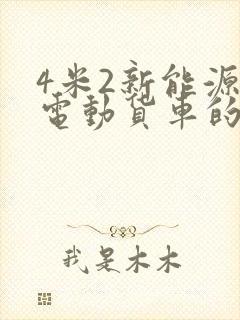 4米2新能源
電動貨車的
我是木木